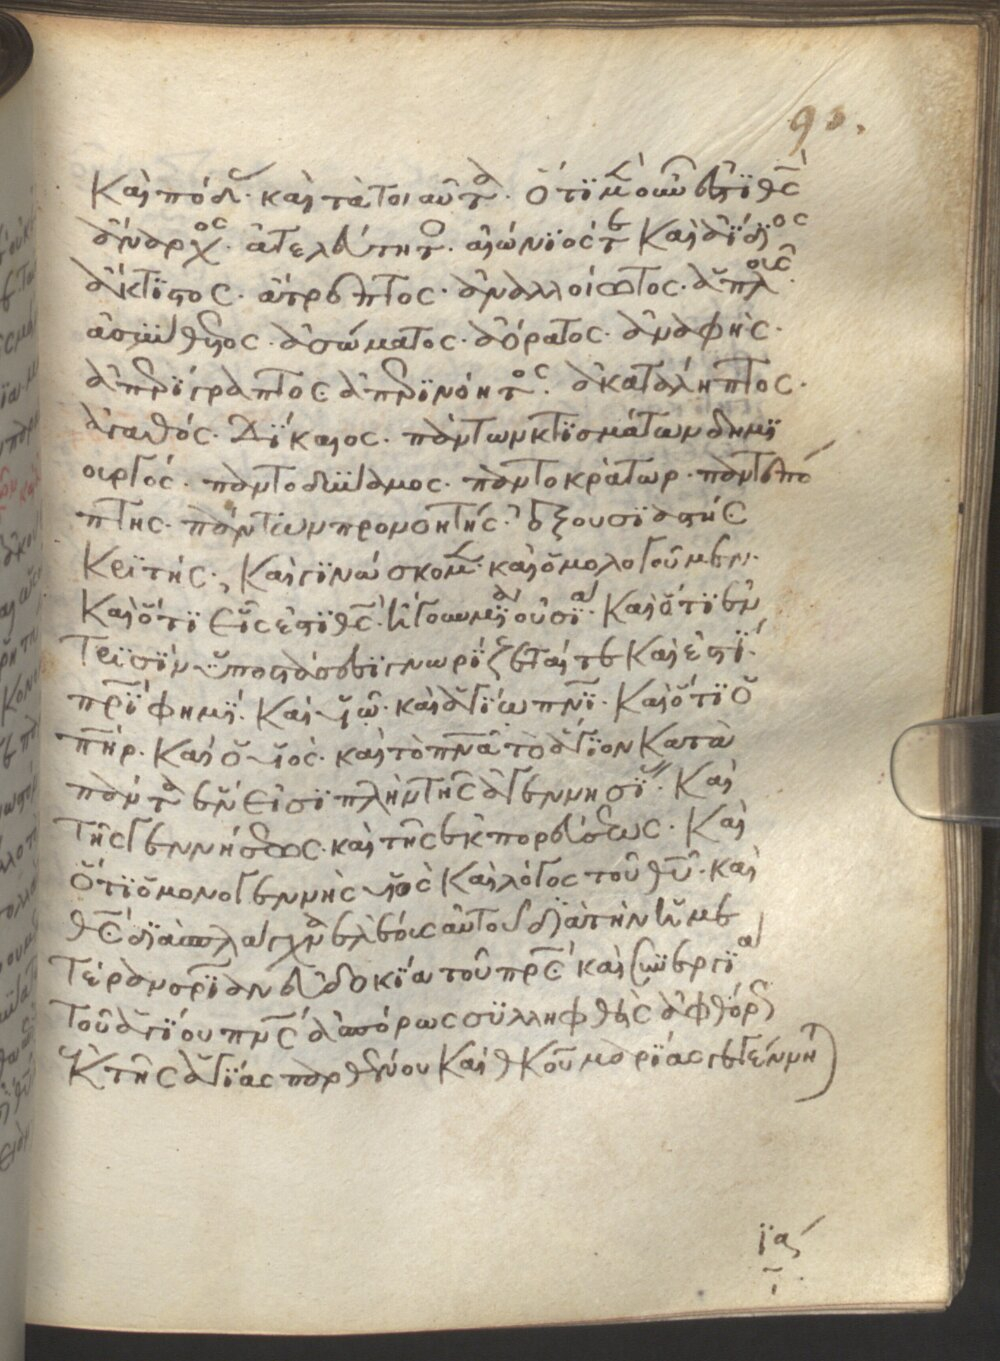 90.
Καὶ πόθεν· καὶ τὰ τοιαῦτα· Ὅτι μὲν οὖν ἐστϊ θς̅
ἄναρχος· ἀτελεύτητος· αἰώνϊός τε Καὶ ἀΐδϊος
ἄκτϊστος· ἄτρεπτος· ἀναλλοίωτος· ἁπλοῦς·
ἀσύνθετος· ἀσώματος· ἀόρατος· ἀναφὴς·
ἀπερϊγραπτος ἀπερϊνόητος· ἀκατάληπτος·
ἀγαθός· Δϊκαιος· πάντων κτϊσμάτων δημϊ
ουργός· παντοδύναμος· παντοκράτωρ· παντεπό
πτης· πάντων προνοητής· ἐξουσϊαστής
Κρϊτής· Καὶ γϊνώσκομεν· καὶ ὁμολογοῦμεν·
Καὶ ὅτϊ εἷς ἐστϊ θς̅· ἤγουν μϊα οὐσϊα· Καὶ ὅτϊ ἐν
Τρϊσὶν ὑποστάσεσϊ γνωρϊζεταί τε Καὶ ἐστϊ·
πρϊ̅ φημϊ· Καὶ υἱῶ· καὶ ἁγϊω πνϊ̅· Καὶ ὅτϊ ὁ
πη̅ρ· Καὶ ὁ υἱὸς· καὶ τὸ πνα̅ τὸ ἅγϊον Κατὰ
πάντα ἕν εἰσϊ πλὴν τῆς ἀγεννησϊας· Καὶ
Τῆς γεννήσεως· καὶ τῆς ἐκπορεύσεως· Καὶ
ὅτϊ ὁ μονογεννὴς υἱὸς Καὶ λόγος τοῦ θυ̅· καὶ
θς̅ δϊὰ σπλάγχνα ἐλέους αὐτοῦ δϊὰ τὴν ἡμε
Τέραν σρϊ̅αν εὐδοκϊα τοῦ πρς̅ καὶ συνεργϊα
Τοῦ ἁγϊου πνς̅ ἀσπόρως συλληφθεὶς ἀφθόρως
Ἐκ τῆς ἁγϊας παρθένου Καὶ θκου̅ μαρϊας γεγέννη
ϊα